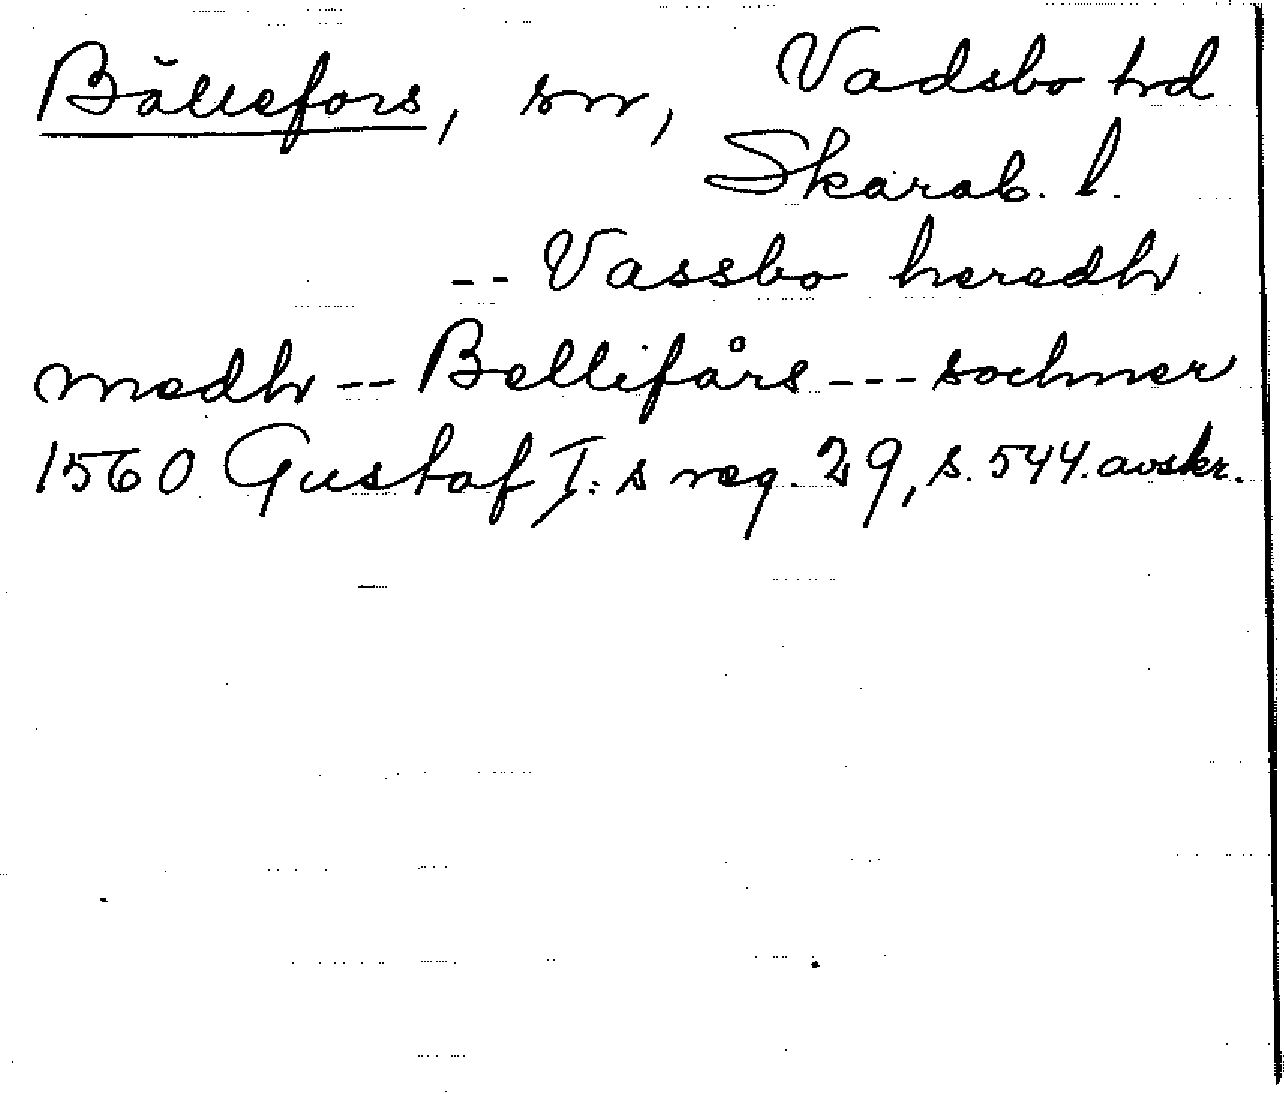 Bällefors, sn, Vadsbo hd
Skarab. l.
-- Vassbo heredh
medh -- Bellifårs --- sochner
1560 Gustaf I:s reg. 29, s. 544. avskr.